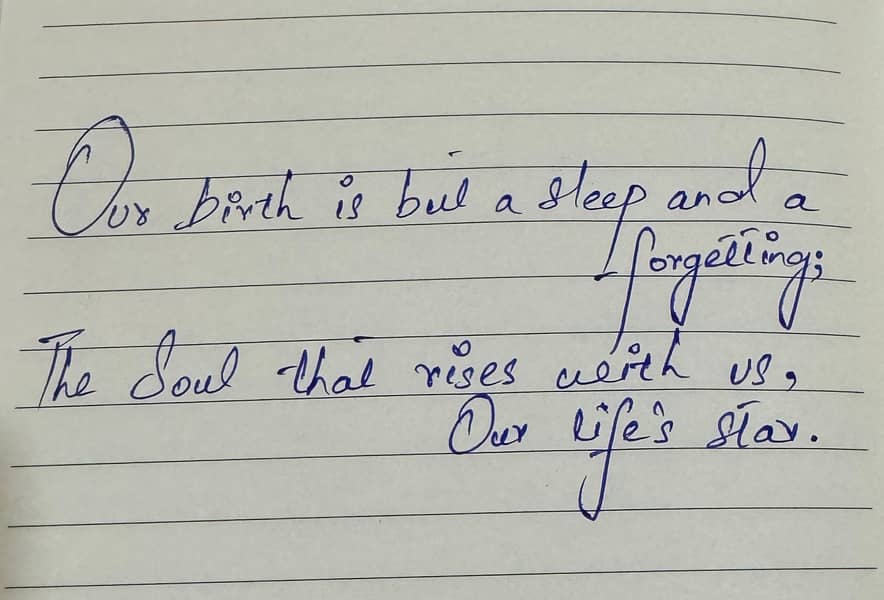 Our birth is but a sleep and a
forgetting;
The Soul that rises with us,
Our life's star.